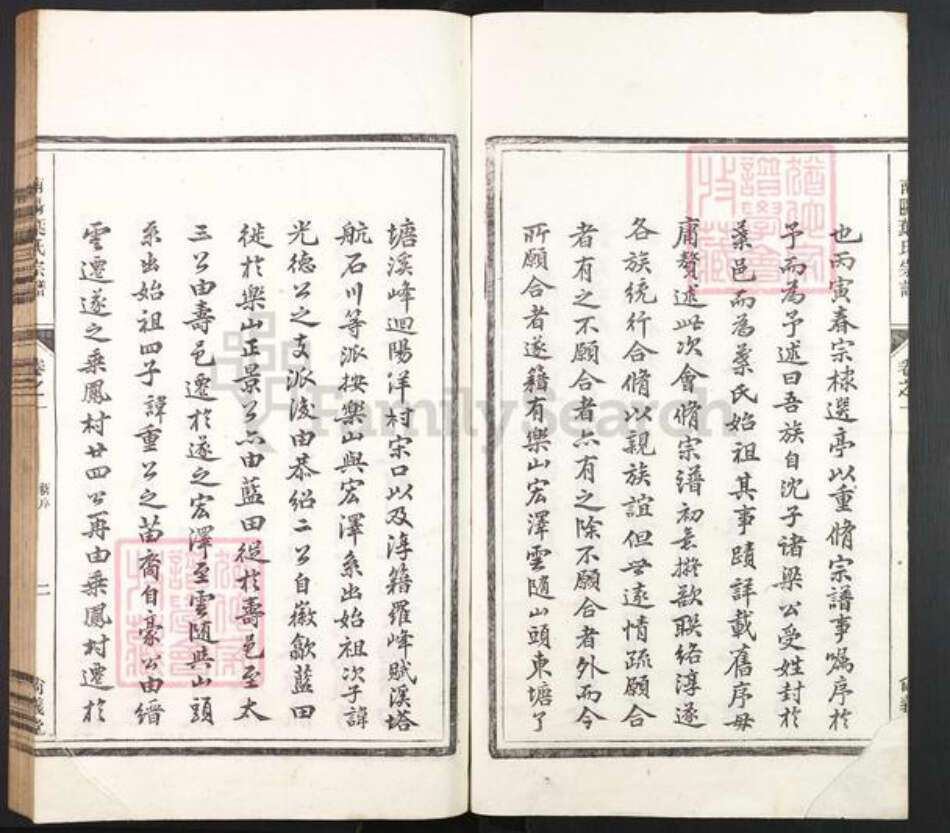 也丙寅春宗棣選亭以重脩宗譜事囑序於
予而為予述曰吾族自沈子诸梁公受姓封於
葉邑而為葉氏始祖其事蹟詳載舊序毋
庸贅述此次會脩宗譜初無擬欲聯络淳遂
各族统行合脩以親族誼但世遠情疏願合
者有之不願合者亦有之除不願合者外而今
所願合者遂籍有樂山宏澤雲随山頭東塘了
塘溪峰迴陽洋村宋口以及淳籍羅峰賦溪塔
航石川等派按樂山與宏澤系出始祖次子諱
光德公之支派後由恭绍二公自徽歙藍田
徙於樂山正景公亦由藍田從於壽邑至太
三公由壽邑遷於遂之宏澤至雲随與山頭
系出始祖四子諱重公之苗裔自豪公由缙
雲遷遂之乘鳳村廿四公再由乘鳳村遷於
南陽葉氏宗譜
卷之一
二